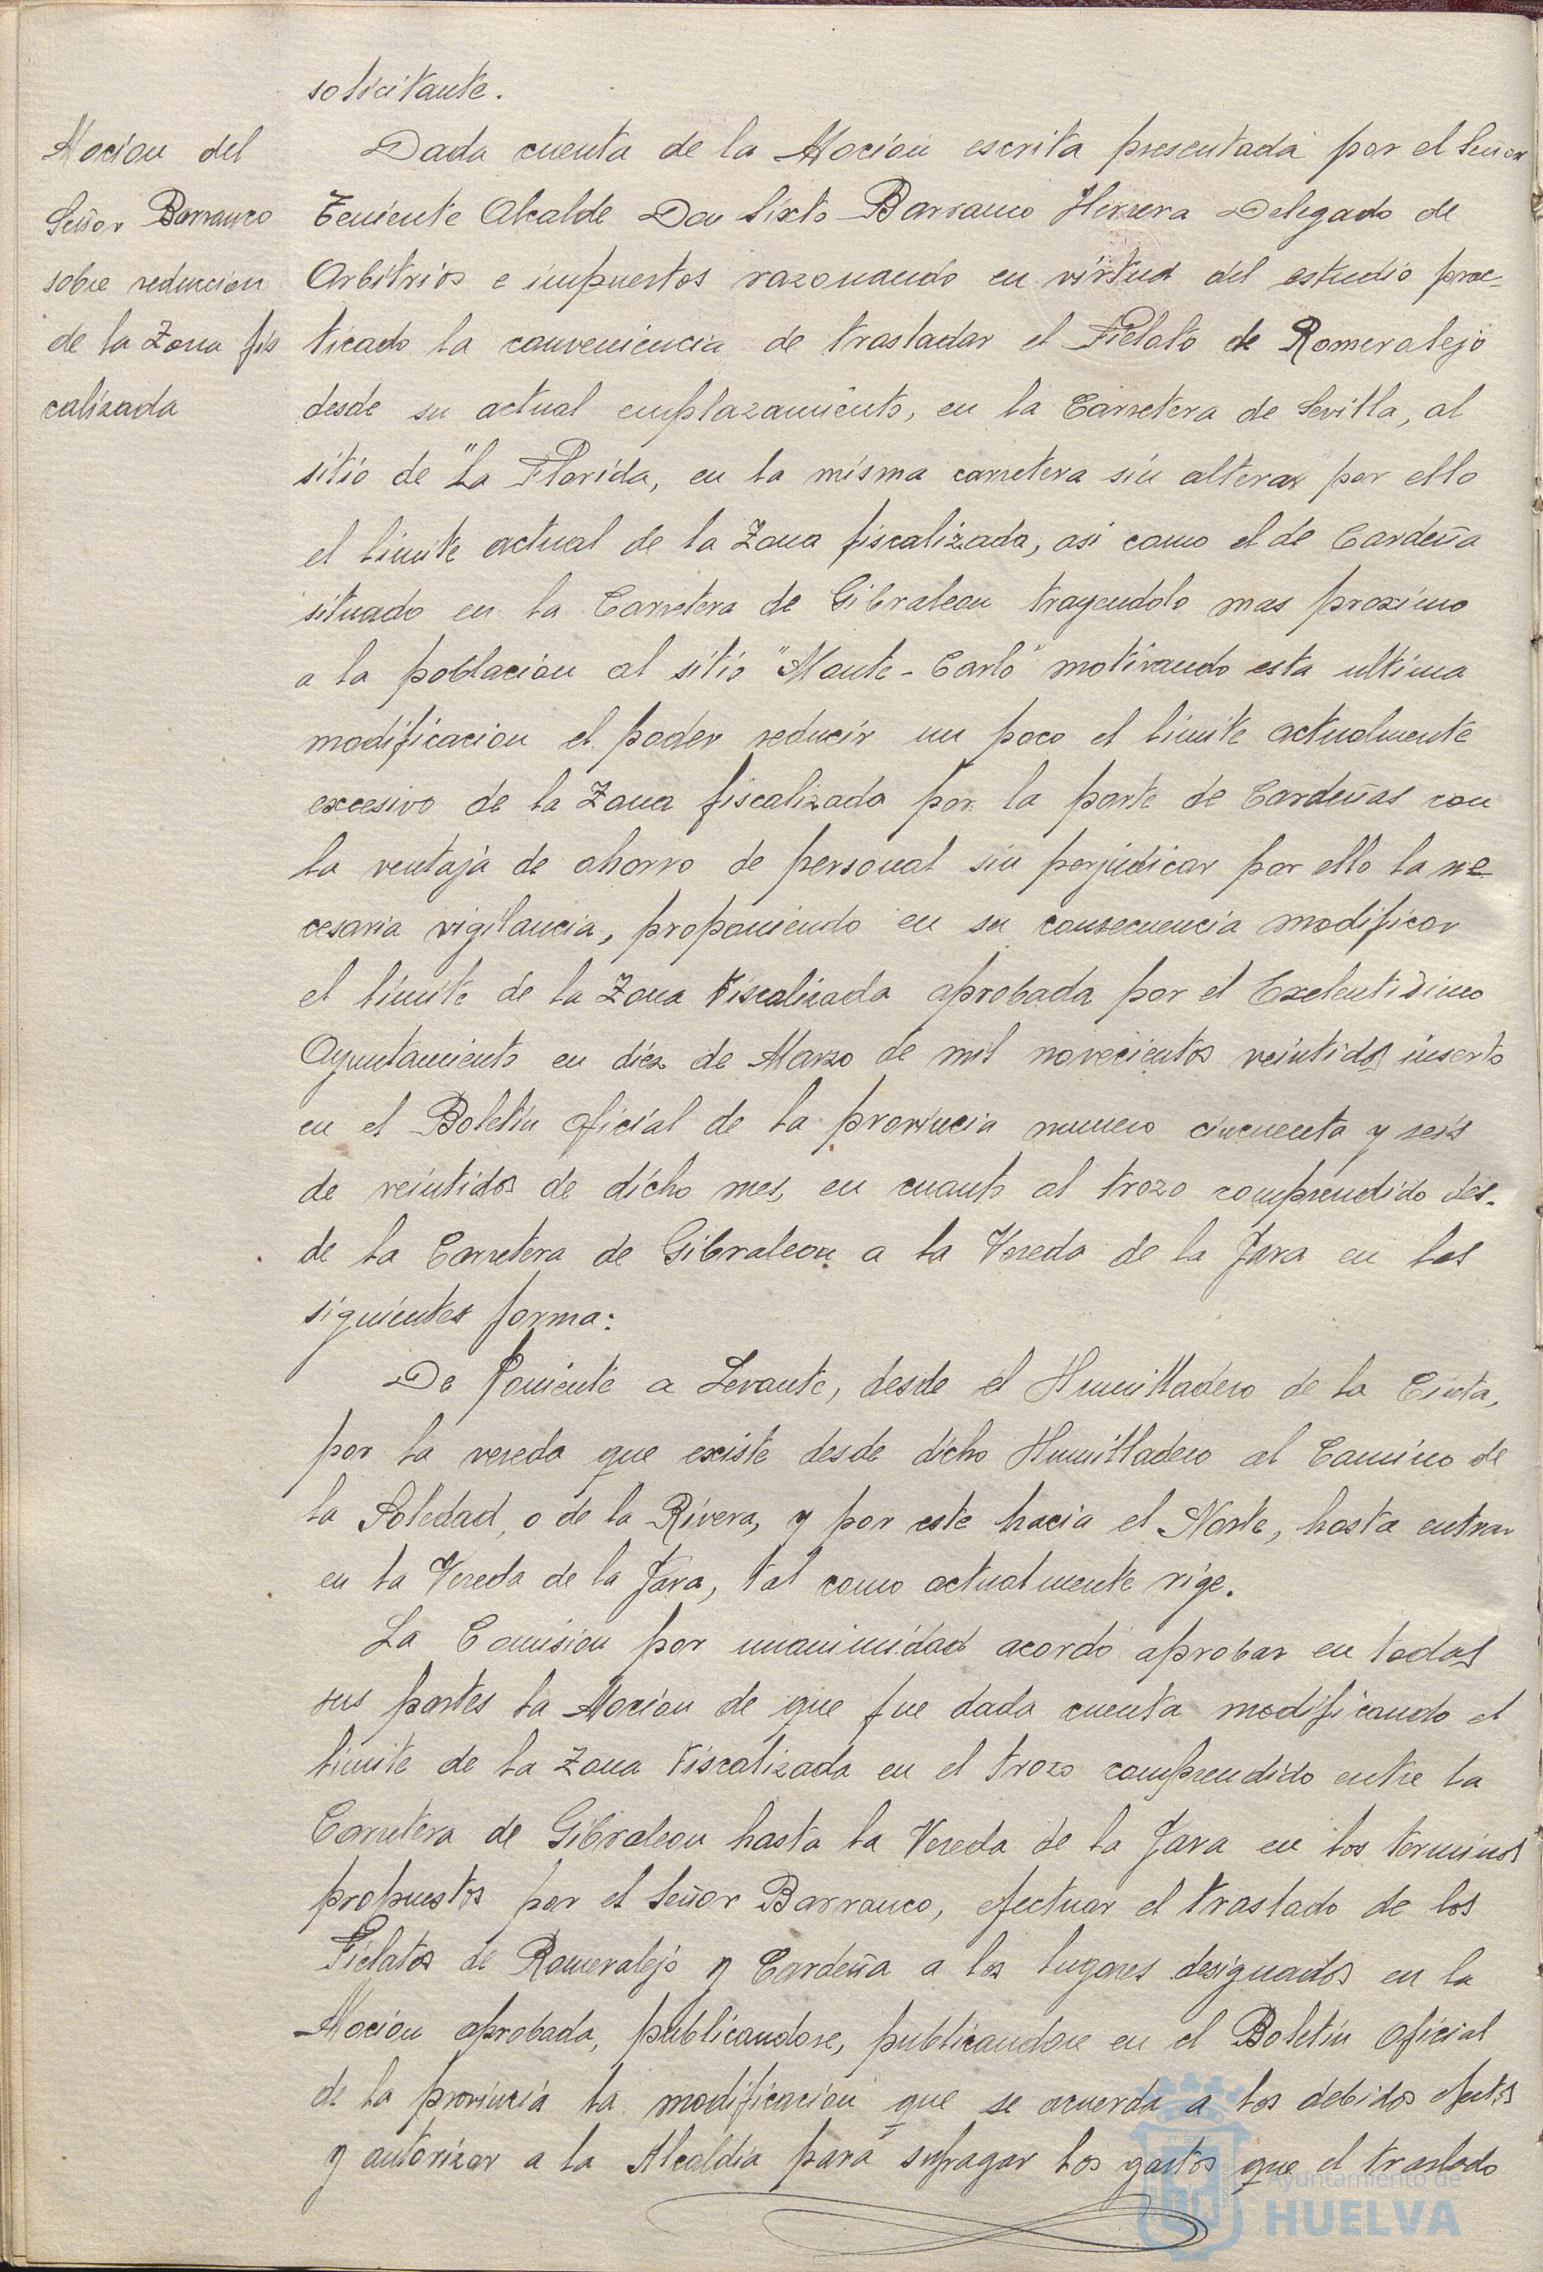 solicitante.
Mocion del
Señor Barranco
sobre reduccion
de la Zona fis
calizada
Dada cuenta de la Mocion escrita presentada por el Señor
Teniente Alcalde Don Sixto Barranco Herrera Delegado de
Arbitrios e impuestos razonando en virtud del estudio prac-
ticado la conveniencia de trasladar el Fielato de Romeralejo
desde su actual emplazamiento, en la Carretera de Sevilla, al
sitio de "La Florida, en la misma carretera sin alterar por ello
el limite actual de la Zona fiscalizada, asi como el de Cardeña
situado en la Carretera de Gibraleon trayendolo mas proximo
a la poblacion al sitio "Monte-Carlo" motivando esta ultima
modificacion el poder reducir un poco el limite actualmente
excesivo de la Zona fiscalizada por la parte de Cardeñas con
la ventaja de ahorro de personal sin perjudicar por ello la ne
cesaria vigilancia, proponiendo en su consecuencia modificar
el limite de la Zona Fiscalizada aprobada por el Exelentisimo
Ayuntamiento en diez de Marzo de mil novecientos veintidos inserto
en el Boletin Oficial de la provincia numero cincuenta y seis
de veintidos de dicho mes, en cuanto al trozo comprendido des-
de la Carretera de Gibraleon a la Vereda de la Jara en las
siguientes forma:
De Poniente a Levante, desde el Humilladero de la Cinta,
por la vereda que existe desde dicho Humilladero al Camino de
la Soledad, o de la Rivera, y por este hacia el Norte, hasta entrar
en la Vereda de la Jara, tal como actualmente rige.
La Comision por unanimidad acordó aprobar en todas
sus partes la Mocion de que fue dada cuenta modificando el
limite de la Zona Fiscalizada en el trozo comprendido entre la
Carretera de Gibraleon hasta la Vereda de la Jara en los terminos
propuestos por el Señor Barranco, efectuar el traslado de los
Fielatos de Romeralejo y Cardeña a los lugares designados en la
Mocion aprobada, publicandose, publicandose en el Boletin Oficial
de la provincia la modificacion que se acuerda a los debidos efectos
y autorizar a la Alcaldia para sufragar los gastos que el traslado
Ayuntamiento de
HUELVA